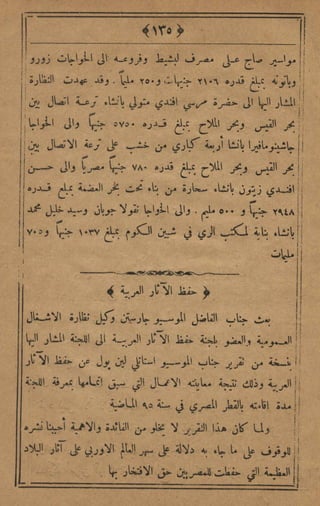 ﴿ ١٣٥ ﴾
مواسير صاج عــلى مصرف لبشيط وفروعــه الى الخواجات زورو
وباتونه بمبلغ قدره ٢١٠٦ جنيهات و٢٥٠ مليماً . وقد عهدت النظارة
المشار اليها الى حضرة مرسي افندي متولي بانشاء ترعــة اتصال بين
بحر القيس وبحر الملاح بمبلغ قــدره ٥٧٥٠ جنيهاً والى الخواجا
جاشينومافيرا بانشا أربعة كباري من خشب على ترعة الاتصال بين
بحر القيس وبحر الملاح بمبلغ قدره ٧٨٠ جنيهاً مصرياً والى حســن
افنــدي زيتون بانشاء سحارة من بناء تحت بحر العضمة بمبلغ قــدره
٢٩٤٨ جنيهاً و ٥٠٠ مليم . والى الخواجا نقولا جوبان وسيد خليل محمد
بانشاء بناية لمكتب الري في شبين الكوم بمبلغ ١٠٣٧ جنيهاً و٧٠٥
مليمات
﴿ حفظ الآثار العربية ﴾
بعث جناب الفاضل الموسيو جارستن وكيل نظارة الاشــغال
العــمومية والعضو بلجنة حفظ الآثار العربيــة الى اللجنة المشار اليها
بنسخة من تقرير جناب الموســيو استانلي لين پول عن حفظ الآثار
العربية وذلك نتيجة معاينته الاعمال التي سبق إتمــامها بمعرفة اللجنة
مدة اقامته بالقطر المصري في سنة ٩٥ المــاضية
ولما كان هذا التقرير لا يخلو من الفائدة والاهمية أحببنا نشره
للوقوف على ما جاء به دلالة على سهر العالم الاوربي على آثار البلاد
العظيمة التي حفظت للمصريين حق الافتخار بها